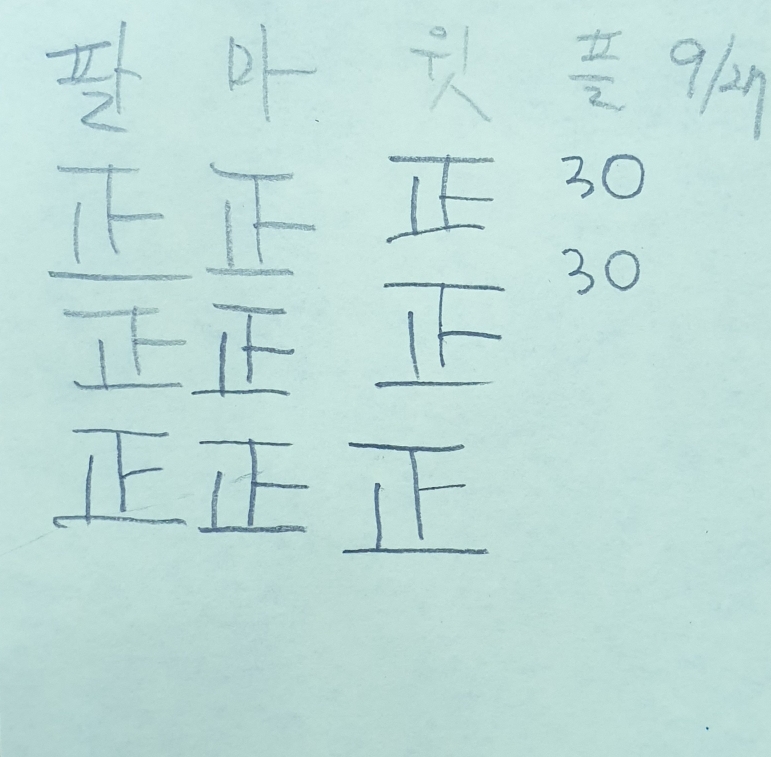 팔 마 윗 플 9/27
正 正 正 30
正 正 正 30
正 正 正